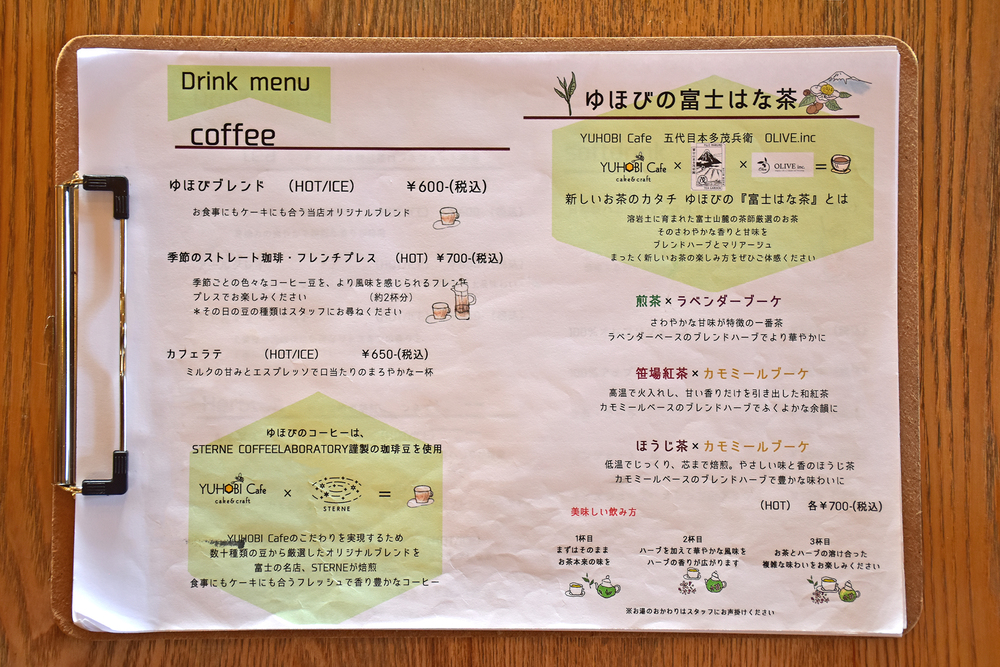 Drink menu
coffee
ゆほびブレンド （HOT/ICE） ￥600-(税込)
お食事にもケーキにも合う当店オリジナルブレンド
季節のストレート珈琲・フレンチプレス （HOT）￥700-(税込)
季節ごとの色々なコーヒー豆を、より風味を感じられるフレンチ
プレスでお楽しみください （約2杯分）
＊その日の豆の種類はスタッフにお尋ねください
カフェラテ （HOT/ICE） ￥650-(税込)
ミルクの甘みとエスプレッソで口当たりのまろやかな一杯
ゆほびのコーヒーは、
STERNE COFFEELABORATORY謹製の珈琲豆を使用
YUHOBI Cafe × ＝
cake&craft
STERNE
YUHOBI Cafeのこだわりを実現するため
数十種類の豆から厳選したオリジナルブレンドを
富士の名店、STERNEが焙煎
食事にもケーキにも合うフレッシュで香り豊かなコーヒー
ゆほびの富士はな茶
YUHOBI Cafe 五代目本多茂兵衛 OLIVE.inc
YUHOBI Cafe × × OLIVE inc. ＝
cake&craft
新しいお茶のカタチ ゆほびの『富士はな茶』とは
溶岩土に育まれた富士山麓の茶師厳選のお茶
そのさわやかな香りと甘味を
ブレンドハーブとマリアージュ
まったく新しいお茶の楽しみ方をぜひご体感ください
煎茶×ラベンダーブーケ
さわやかな甘味が特徴の一番茶
ラベンダーベースのブレンドハーブでより華やかに
笹場紅茶×カモミールブーケ
高温で火入れし、甘い香りだけを引き出した和紅茶
カモミールベースのブレンドハーブでふくよかな余韻に
ほうじ茶×カモミールブーケ
低温でじっくり、芯まで焙煎。やさしい味と香のほうじ茶
カモミールベースのブレンドハーブで豊かな味わいに
（HOT） 各￥700-(税込)
美味しい飲み方
1杯目
まずはそのまま
お茶本来の味を
2杯目
ハーブを加えて華やかな風味を
ハーブの香りが広がります
3杯目
お茶とハーブの溶け合った
複雑な味わいをお楽しみください
※お湯のおかわりはスタッフにお声掛けください